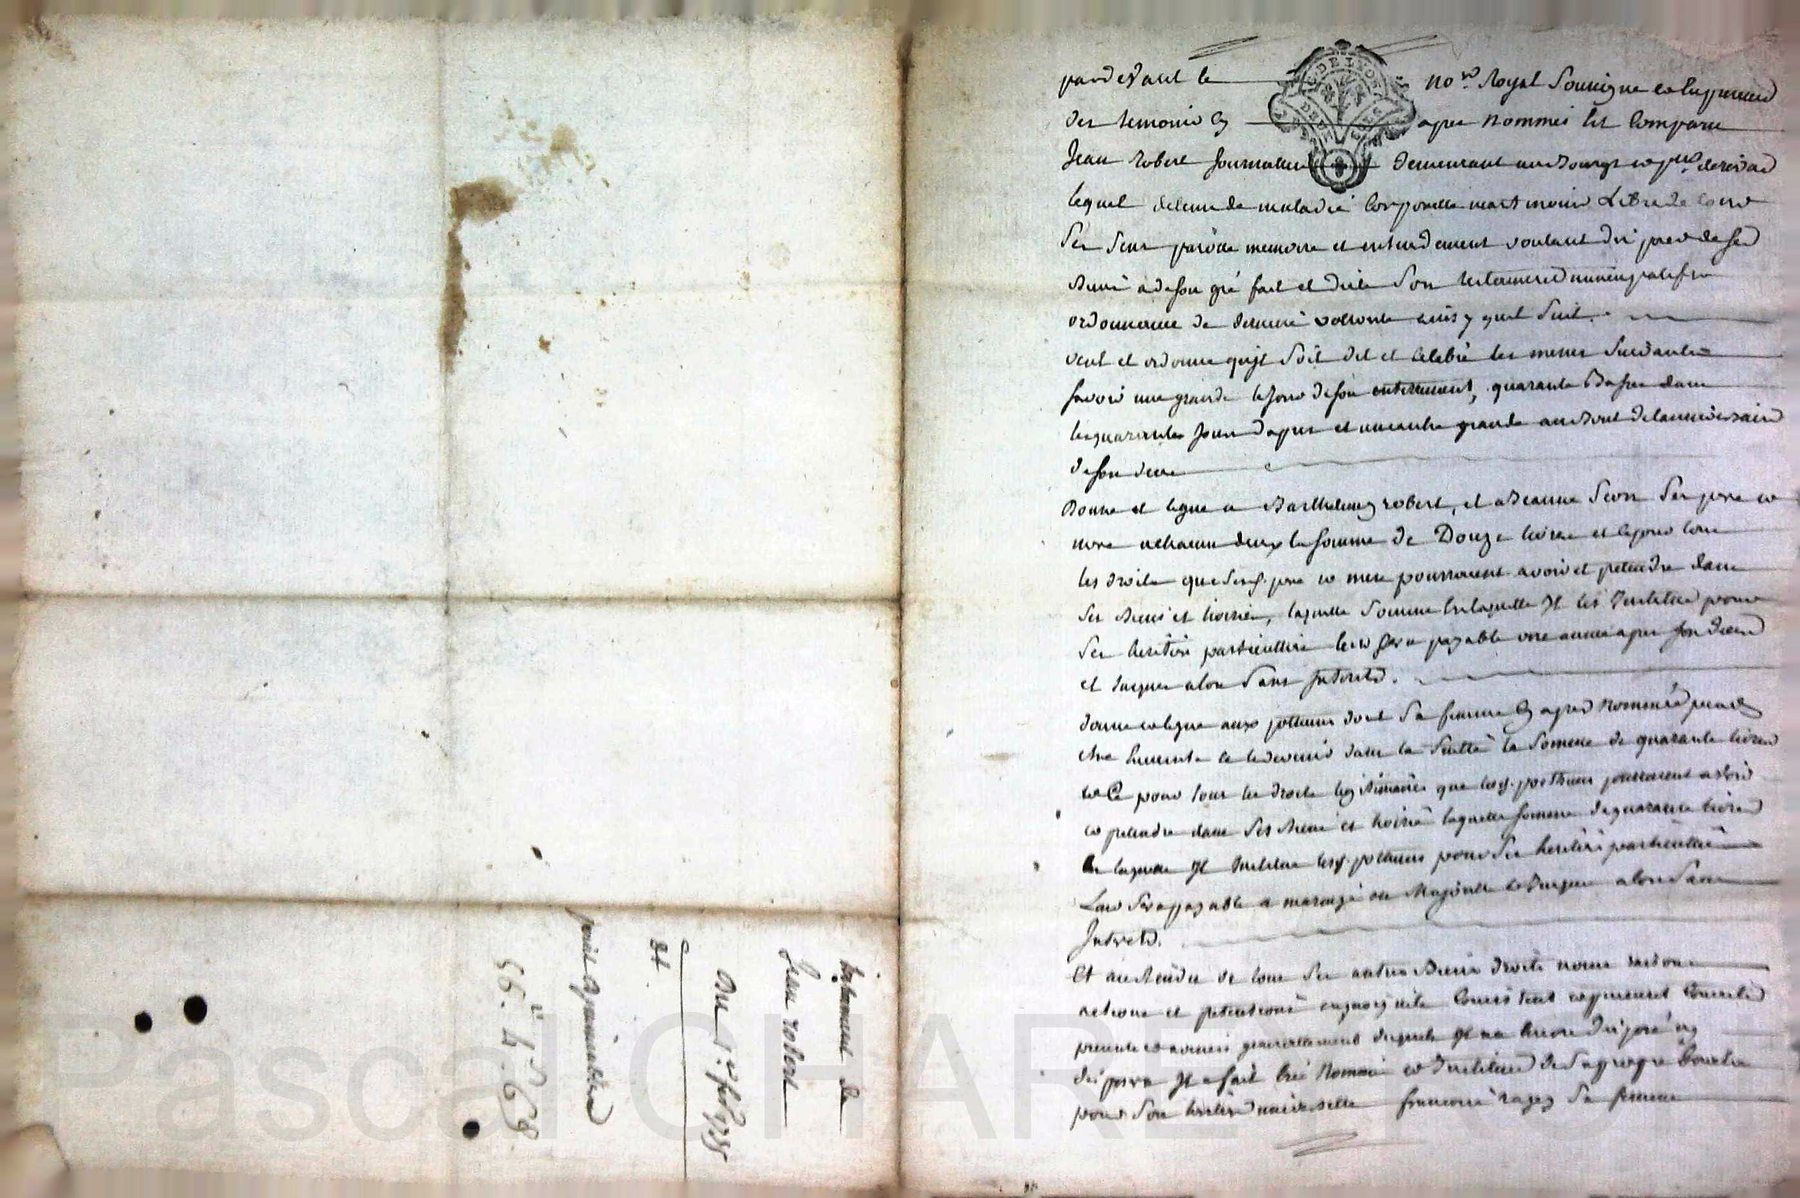 pardevant le no.re Royal Soussigné et En presence
des temoins Cy apres nommés Est Comparu
Jean robert Journallier demeurant au Bourg et p.sse
lequel detenu de maladie Corporelle neant moins Libre de tous
Ses Sens parolle memoire et entendement voulant disposer de Ses
Biens a de son gré fait et dicté Son testament nuncupatif et
ordonnance de derniere volonté ainsy quil Suit.
veut et ordonne quil Soit dit et Celebré les messes Suivantes
savoir une grande le jour de son enterrement, quarante Basses dans
les quarante Jours d'apres et une autre grande au Bout de l'anniversaire
de son deces
Donne et legue a Barthelemy robert, et a Jeanne Seon Ses pere et
mere a chacun deux la somme de Douze livres et ce pour tous
les droits que Sesd. pere et mere pourroient avoir et pretendre dans
Ses Biens et hoirie, laquelle Somme En laquelle Il les Institue pour
Ses heritiers particulliers leur Sera payable une année apres Son deces
et Jusques alors Sans Interets.
donne et legue aux postumes dont Sa femme Cy apres Nommée peut
etre Enceinte et le devenir dans la Suitte la Somme de quarante livres
et Ce pour tous les droits legitimaires que lesd. posthumes pourroient avoir
et pretendre dans Ses Biens et hoirie laquelle somme de quarante livres
En laquelle Il Institue lesd. postumes pour Ses heritiers particulliers
Leur Sera payable a mariage ou Majorité et Jusques alors Sans
Interets.
Et au Residu de tous Ses autres Biens droits noms raisons
actions et pretentions en quoy quils Consistent et puissent Consister
presents et avenirs generallement desquels Il na Encore disposé ny
dispose Il a fait Créé Nommé et Institué de Sa propre Bouche
pour Son heritiere universelle francoise Sa femme
testament de
Jean robert
Du 1.er f.er 1775
84.
55. 4. 68
DE LYON
Pascal CHAREYRON